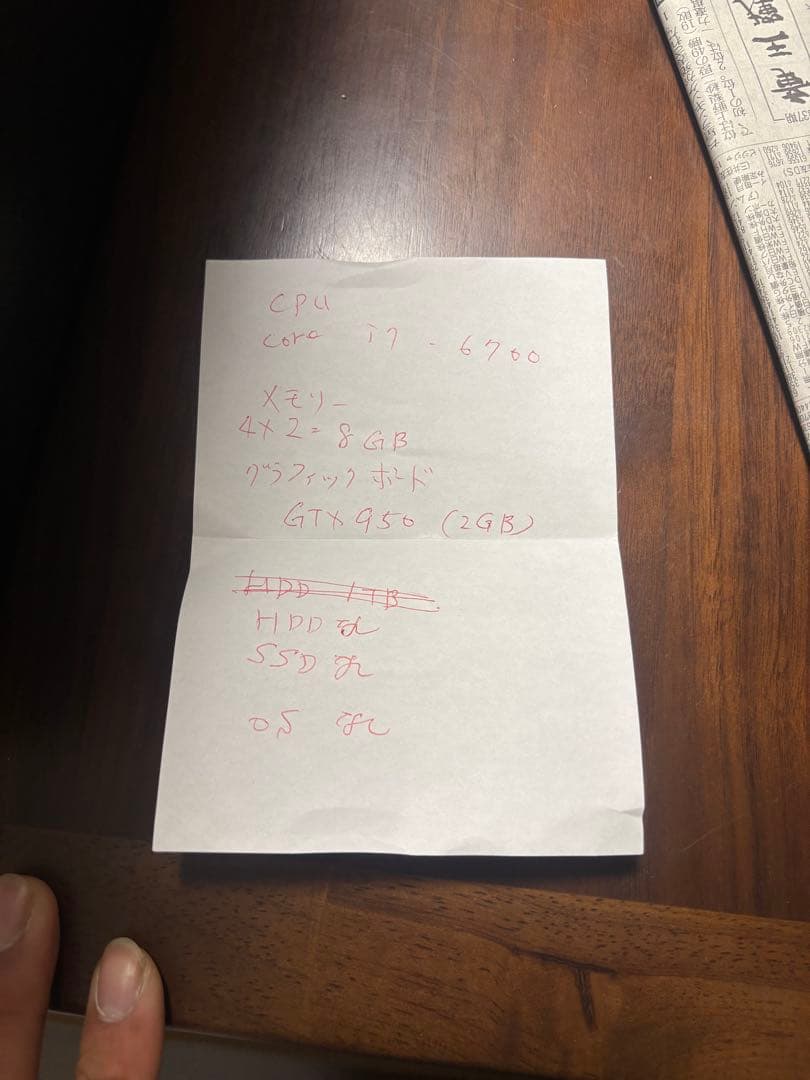 CPU
core i7 - 6700
メモリー
4×2=8GB
グラフィックボード
GTX950 (2GB)
HDD 1TB
HDD なし
SSD なし
OS なし
竜王戦